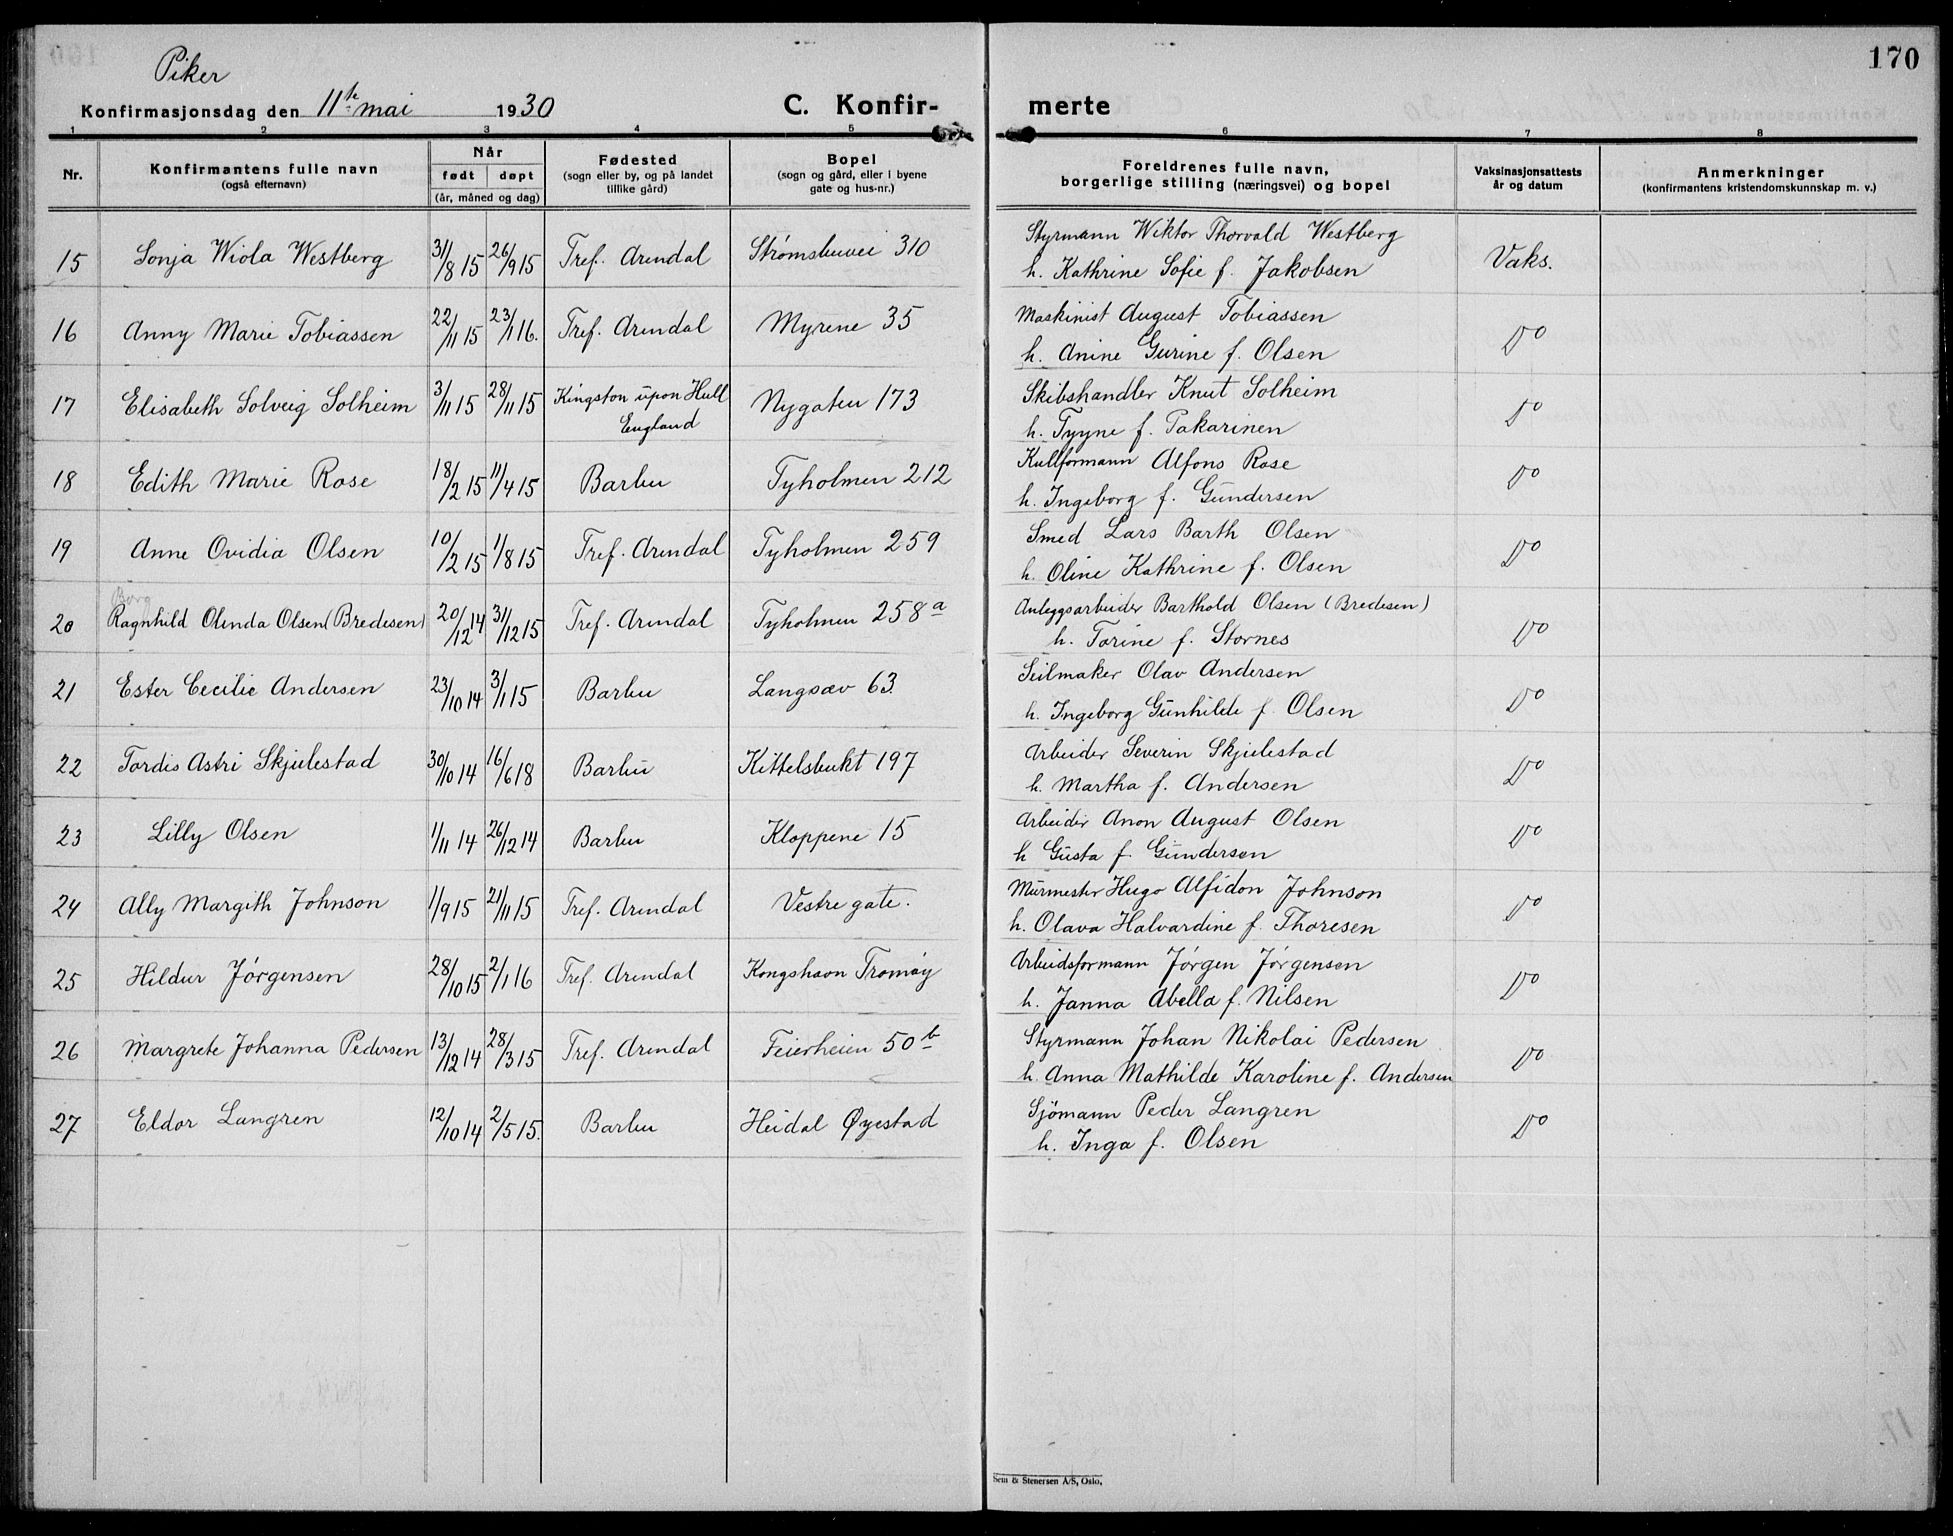 170
Piker
Konfirmasjonsdag den 11te mai 1930 C. Konfir- merte
1 2 3 4 5 6 7 8
Nr. Konfirmantens fulle navn (også efternavn) Når født døpt (år, måned og dag) Fødested (sogn eller by, og på landet tillike gård) Bopel (sogn og gård, eller i byene gate og hus-nr.) Foreldrenes fulle navn, borgerlige stilling (næringsvei) og bopel Vaksinasjonsattests år og datum Anmerkninger (konfirmantens kristendomskunnskap m. v.)
15 Sonja Wiola Westberg 31/8 15 26/9 15 Tref. Arendal Strømsbuvei 310 Styrmann Wiktor Thorvald Westberg Vaks.
h. Kathrine Sofie f. Jakobsen
16 Anny Marie Tobiassen 22/11 15 23/1 16. Tref. Arendal Myrene 35 Maskinist August Tobiassen Do
h. Anine Gurine f. Olsen
17 Elisabeth Solveig Solheim 3/11 15 28/11 15 Kingston upon Hull England Nygaten 173 Skibshandler Knut Solheim Do
h. Tyyne f. Pakarinen
18 Edith Marie Rose 18/2 15 11/4 15 Barbu Tyholmen 212 Kullformann Alfons Rose Do
h. Ingeborg f. Gundersen
19 Anne Ovidia Olsen 10/2 15 1/8 15 Tref. Arendal Tyholmen 259 Smed Lars Barth Olsen Do
h. Oline Kathrine f. Olsen
Borg
20 Ragnhild Olinda Olsen (Bredesen) 20/12 14 31/12 15 Tref. Arendal Tyholmen 258a Anleggsarbeider Barthold Olsen (Bredesen) Do
h. Torine f. Stornes
21 Ester Cecilie Andersen 23/10 14 3/1 15 Barbu Langsæv 63. Seilmaker Olav Andersen Do
h. Ingeborg Gunhilde f. Olsen
22 Tordis Astri Skjulestad 30/10 14 16/6 18 Barbu Kittelsbukt 197 Arbeider Severin Skjulestad Do
h. Martha f. Andersen
23 Lilly Olsen 1/11 14 26/12 14 Barbu Kloppene 15 Arbeider Anon August Olsen Do
h Gusta f. Gundersen
24 Ally Margith Johnson 1/9 15 21/11 15 Tref. Arendal Vestre gate. Murmester Hugo Alfidon Johnson Do
h. Olava Halvardine f. Thoresen
25 Hildur Jørgensen 28/10 15 2/1 16 Tref. Arendal Kongshavn Tromøy Arbeidsformann Jørgen Jørgensen Do
h. Janna Abella f. Nilsen
26 Margrete Johanna Pedersen 13/12 14 28/3 15 Tref. Arendal Feierheien 50b Styrmann Johan Nikolai Pedersen Do
h. Anna Mathilde Karoline f. Andersen
27 Eldor Langren 12/10 14 2/5 15. Barbu Heidal Øyestad Sjømann Peder Langren Do
h. Inga f. Olsen
Sem & Stenersen A/S, Oslo.